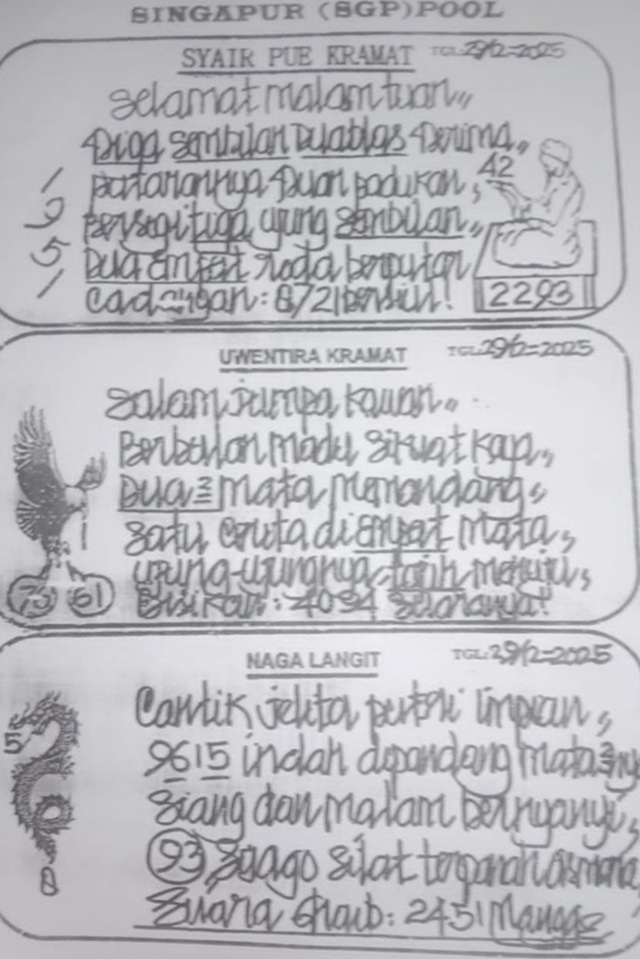 SINGAPUR (SGP) POOL
SYAIR PUE KRAMAT TGL: 29/12=2025
Selamat malam tuan,,
Tiga sembilan Duablas Terima,,
42
pertarannya Tuan padukan,
Persegi tiga ujung sembilan,,
Dua empat roda berputar
Cadangan: 8721 bersiul!
1
9
5
1
2293
UWENTIRA KRAMAT TGL: 29/12=2025
Salam jumpa kawan,,
Berbulan madu sikuat kap,,
Dua mata memandang,
Satu Cerita di empat mata,
ujung-ujungnya menuju,
Bisikan: 4034 Suaranya!
73 61
NAGA LANGIT TGL: 29/12=2025
Cantik jelita puteri impian,
9615 indah dipandang mata
Siang dan malam bernyanyi,
93 Jago Silat terpanah asmara
Suara Ghaib: 2451 Mangga
5
8